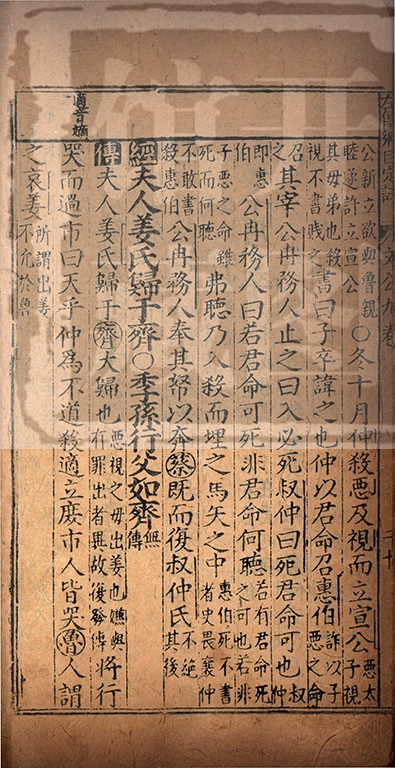 公新立欲與魯親睦遂許立宣公○冬十月仲殺惡及視而立宣公惡太子視
其母弟也殺視不書賤之書曰子卒諱之也仲以君命召惠伯詐以子惡之命
召之其宰公冉務人止之曰入必死叔仲曰死君命可也叔仲
即惠伯公冉務人曰若君命可死非君命何聽若有君命死之可也若非
子惡之命雖死而何聽弗聽乃入殺而埋之馬矢之中惠伯死不書者史畏襄仲
不敢書殺惠伯公冉務人奉其帑以奔蔡既而復叔仲氏不絕其後
經夫人姜氏歸于齊○季孫行父如齊無傳
傳夫人姜氏歸于齊大歸也惡視之母出姜也嫌與有罪出者異故復發傳將行
適音嫡
哭而過市曰天乎仲爲不道殺適立庶市人皆哭魯人謂
之哀姜所謂出姜不允於魯